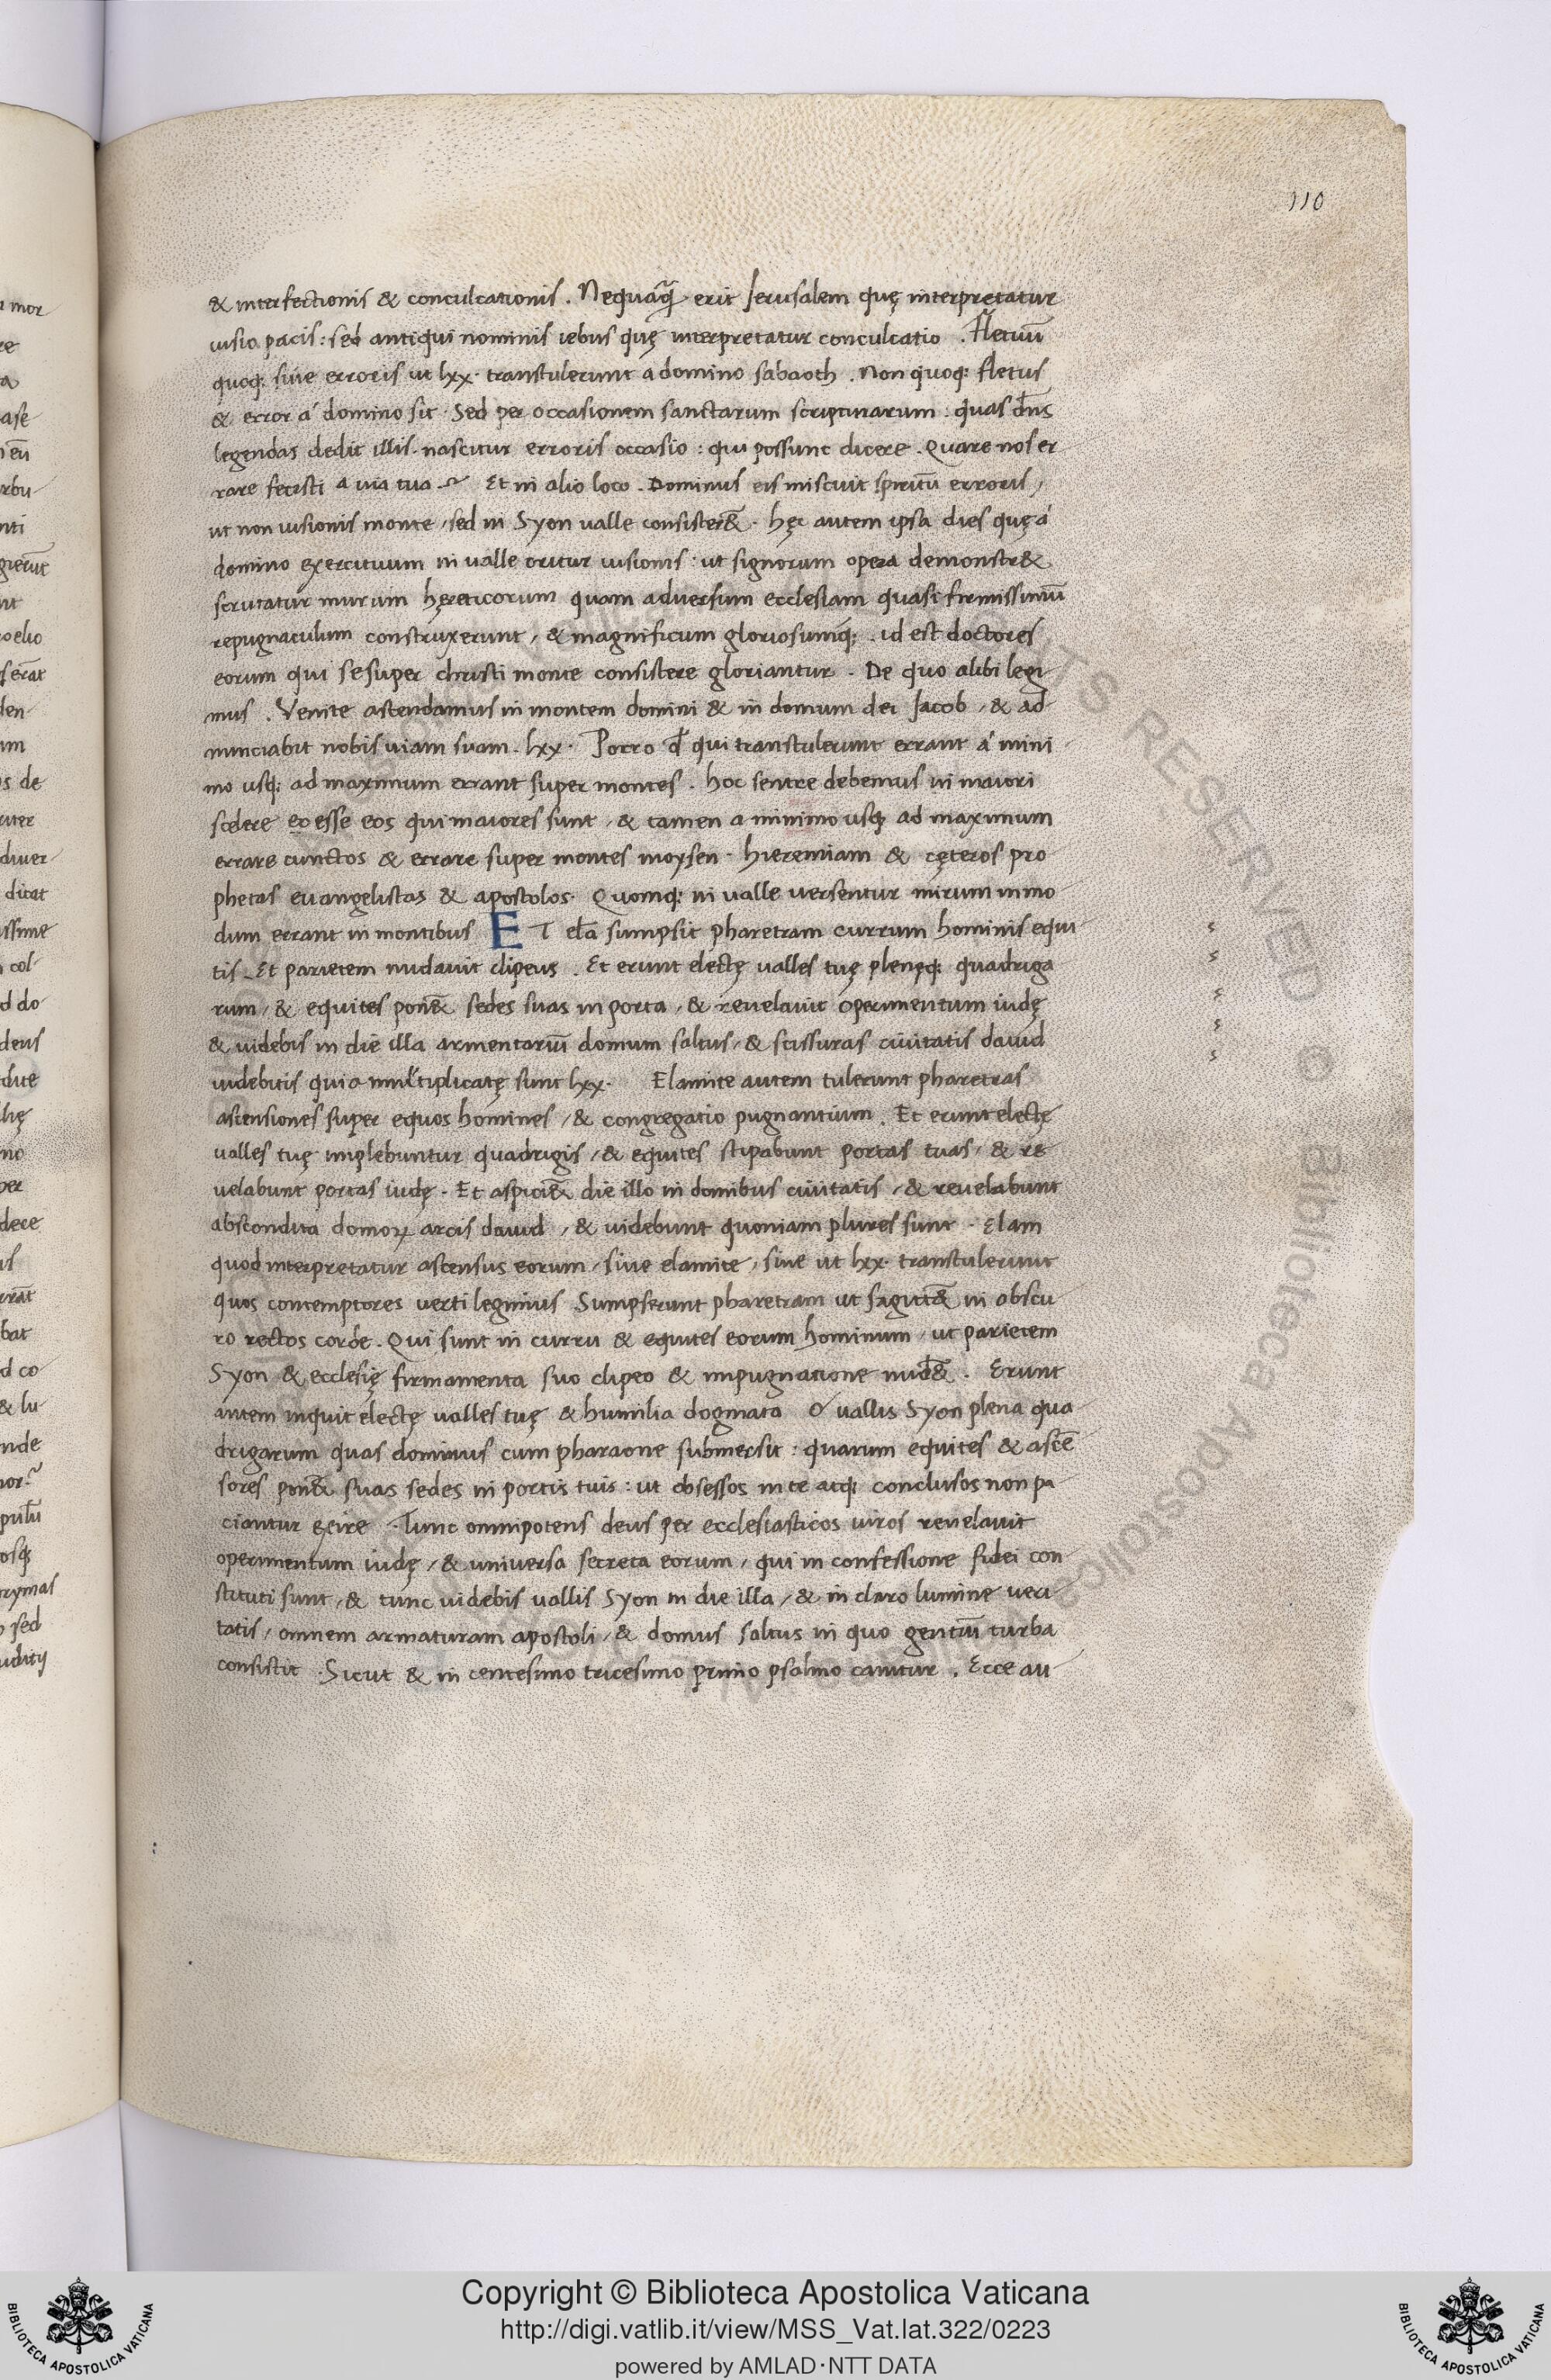 110
& interfectionis & conculcationis . Nequaq̃ erit Jerusalem quę interpretatur
uisio pacis : sed antiqui nominis iebus quę interpretatur conculcatio . Fletuū
quoq; siue erroris ut lxx · transtulerunt a domino sabaoth . Non quoq; fletus
& error á domino sit · Sed per occasionem sanctarum scripturarum : quas dn̄s
legendas dedit illis · nascitur erroris occasio : qui possunt dicere . Quare nos er
rare fecisti a uia tua . Et in alio loco . Dominus eis miscuit spiritū erroris /
ut non uisionis monte / sed in Syon ualle consister& · hęc autem ipsa dies quę á
domino exercituum in ualle oritur uisionis · ut signorum opera demonstr&
scrutatur murum hęreticorum quam adversum ecclesiam quasi firmissimū
repugnaculum construxerunt / & magnificum gloriosumq; . id est doctores
eorum qui se super christi monte consistere gloriantur . De quo alibi legi
mus . Venite ascendamus in montem domini & in domum dei Jacob / & ad
nunciabit nobis uiam suam . lxx · Porro qd̄ qui transtulerunt errant á mini
mo usq; ad maximum errant super montes . hoc sentre debemus in maiori
scelere eo esse eos qui maiores sunt / & tamen a minimo usq; ad maximum
errare cunctos & errare super montes moysen · hieremiam & cęteros pro
phetas euangelistas & apostolos · Quomq; in ualle uersentur mirum inmo
dum errant in montibus ET el̄a sumpsit pharetram currum hominis equi
tis . Et parietem nudauit clipeus . Et erunt electę ualles tuę plenęq; quadriga
rum / & equites pon& sedes suas in porta / & reuelauit operimentum iudę
& uidebis in die illa armentariū domum saltus / & scissuras ciuitatis dauid
uidebitis quia multiplicatę sunt lxx · Elamite autem tulerunt pharetras
ascensiones super equos homines / & congregatio pugnantium . Et erunt electę
ualles tuę implebuntur quadrigis / & equites stipabunt portas tuas / & re
uelabunt portas iudę . Et aspici& die illo in domibus ciuitatis / & reuelabunt
abscondita domoꝝ arcis dauid / & uidebunt quoniam plures sunt . Elam
quod interpretatur ascensus eorum / siue elamite / siue ut lxx · transtulerunt
quos contemptores verti legimus . Sumpserunt pharetram ut sagitt& in obscu
ro rectos corde . Qui sunt in curru & equites eorum hominum / ut parietem
Syon & ecclesię firmamenta suo clipeo & impugnatione nud& . Erunt
autem inquit electę ualles tuę & humilia dogmata O uallis Syon plena qua
drigarum quas dominus cum pharaone submersit : quarum equites & ascē
sores pon& suas sedes in portis tuis : ut obsessos in te atq; conclusos non pa
ciantur exire . Tunc omnipotens deus per ecclesiasticos uiros reuelauit
operimentum iudę / & universa secreta eorum / qui in confessione fidei con
stituti sunt / & tunc uidebis uallis Syon in die illa / & in claro lumine ueri
tatis / omnem armaturam apostoli / & domus saltus in quo gentiū turba
consistit . Sicut & in centesimo tricesimo primo psalmo canitur . Ecce au
Copyright © Biblioteca Apostolica Vaticana
http://digi.vatlib.it/view/MSS_Vat.lat.322/0223
powered by AMLAD·NTT DATA
BIBLIOTECA APOSTOLICA VATICANA
BIBLIOTECA APOSTOLICA VATICANA